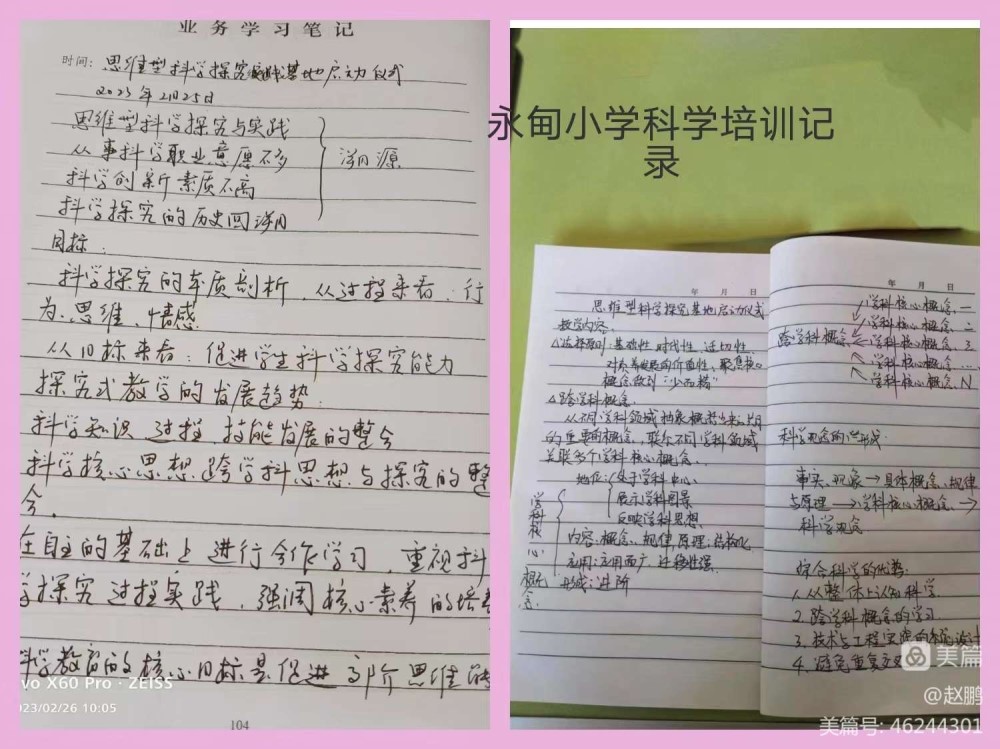 业务学习笔记
时间: 思维型科学探究实践基地启动仪式
2023年2月25日
思维型科学探究与实践
从事科学职业意愿不多
科学创新素质不高
科学探究的历史回溯
溯源
目标:
科学探究的本质剖析,从过程来看:行
为、思维、情感
从目标来看:促进学生科学探究能力
探究式教学的发展趋势
科学知识 过程 技能发展的整合
科学核心思想跨学科思想与探究的整
合。
在自主的基础上进行合作学习,重视科
学探究过程实践,强调核心素养的培养
科学教育的核心目标是促进高阶思维的
vivo X60 Pro · ZEISS
2023/02/26 10:05
104
永甸小学科学培训记
录
思维型科学探究基地启动仪式
教学内容
△选择原则:基础性 时代性、适切性
概念做到"少而精"
△跨学科概念
从不同学科领域抽象概括出来
的重要的概念,联合不同学科领域
关联多个学科核心概念.
学科核心概念
地位:处于学科中心、
展示学科图景
反映学科思想
内容:概念、规律、原理:结构化
应用:应用面广、迁移性强
形成:进阶
年 月 日
年 月 日
跨学科概念
学科核心概念一
学科核心概念二
学科核心概念三
学科核心概念……
学科核心概念N
科学观念的形成
事实、现象→具体概念、规律
与原理→学科核心概念→
科学观念
综合科学的优势:
1.从整体上认知科学
2.跨学科概念的学习
3.技术与工程实践的
4.避免重复交叉
美篇
@赵鹏
美篇号: 46244301